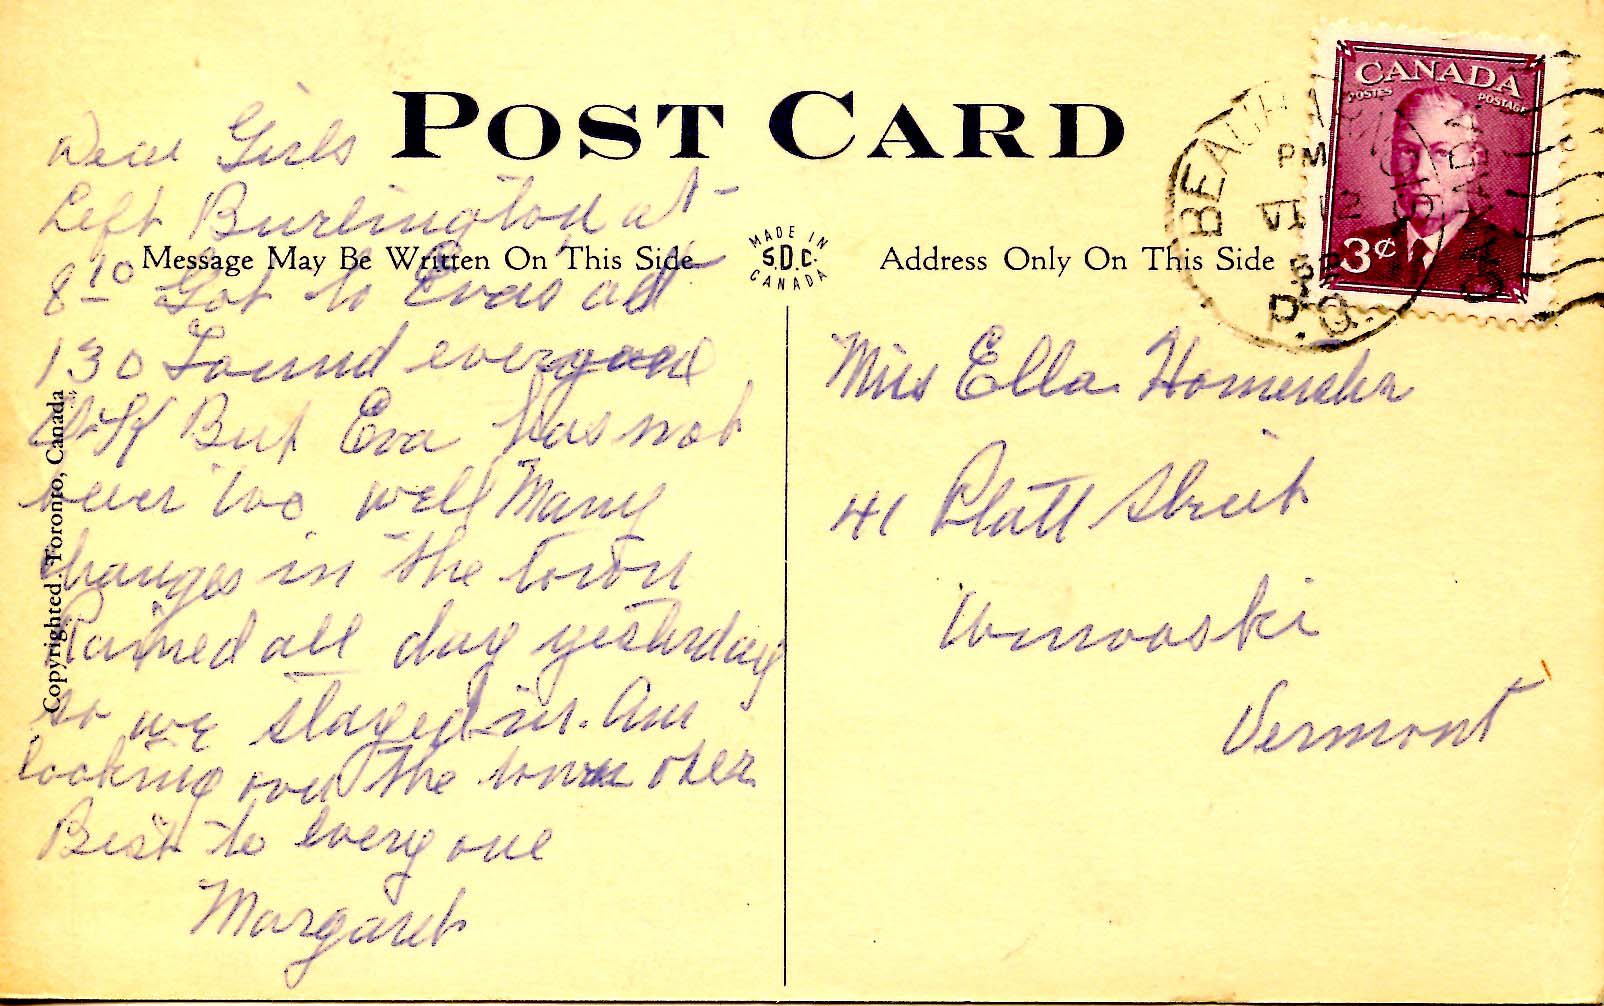 POST CARD
Message May Be Written On This Side
MADE IN
S.D.C.
CANADA
Address Only On This Side
Copyrighted. Toronto, Canada
CANADA
POSTES POSTAGE
3¢
PM
VI 12
52
P.Q.
CANADA
Dear Girls
Left Burlington at
8 10 Got to Evas at
130 Found everyone
But Eva has not
been too well Many
changes in the town
Rained all day yesterday
so we stayed in. Am
looking over the town over
Best to every one
Margaret
Miss Ella
41 Platt Street
Winooski
Vermont